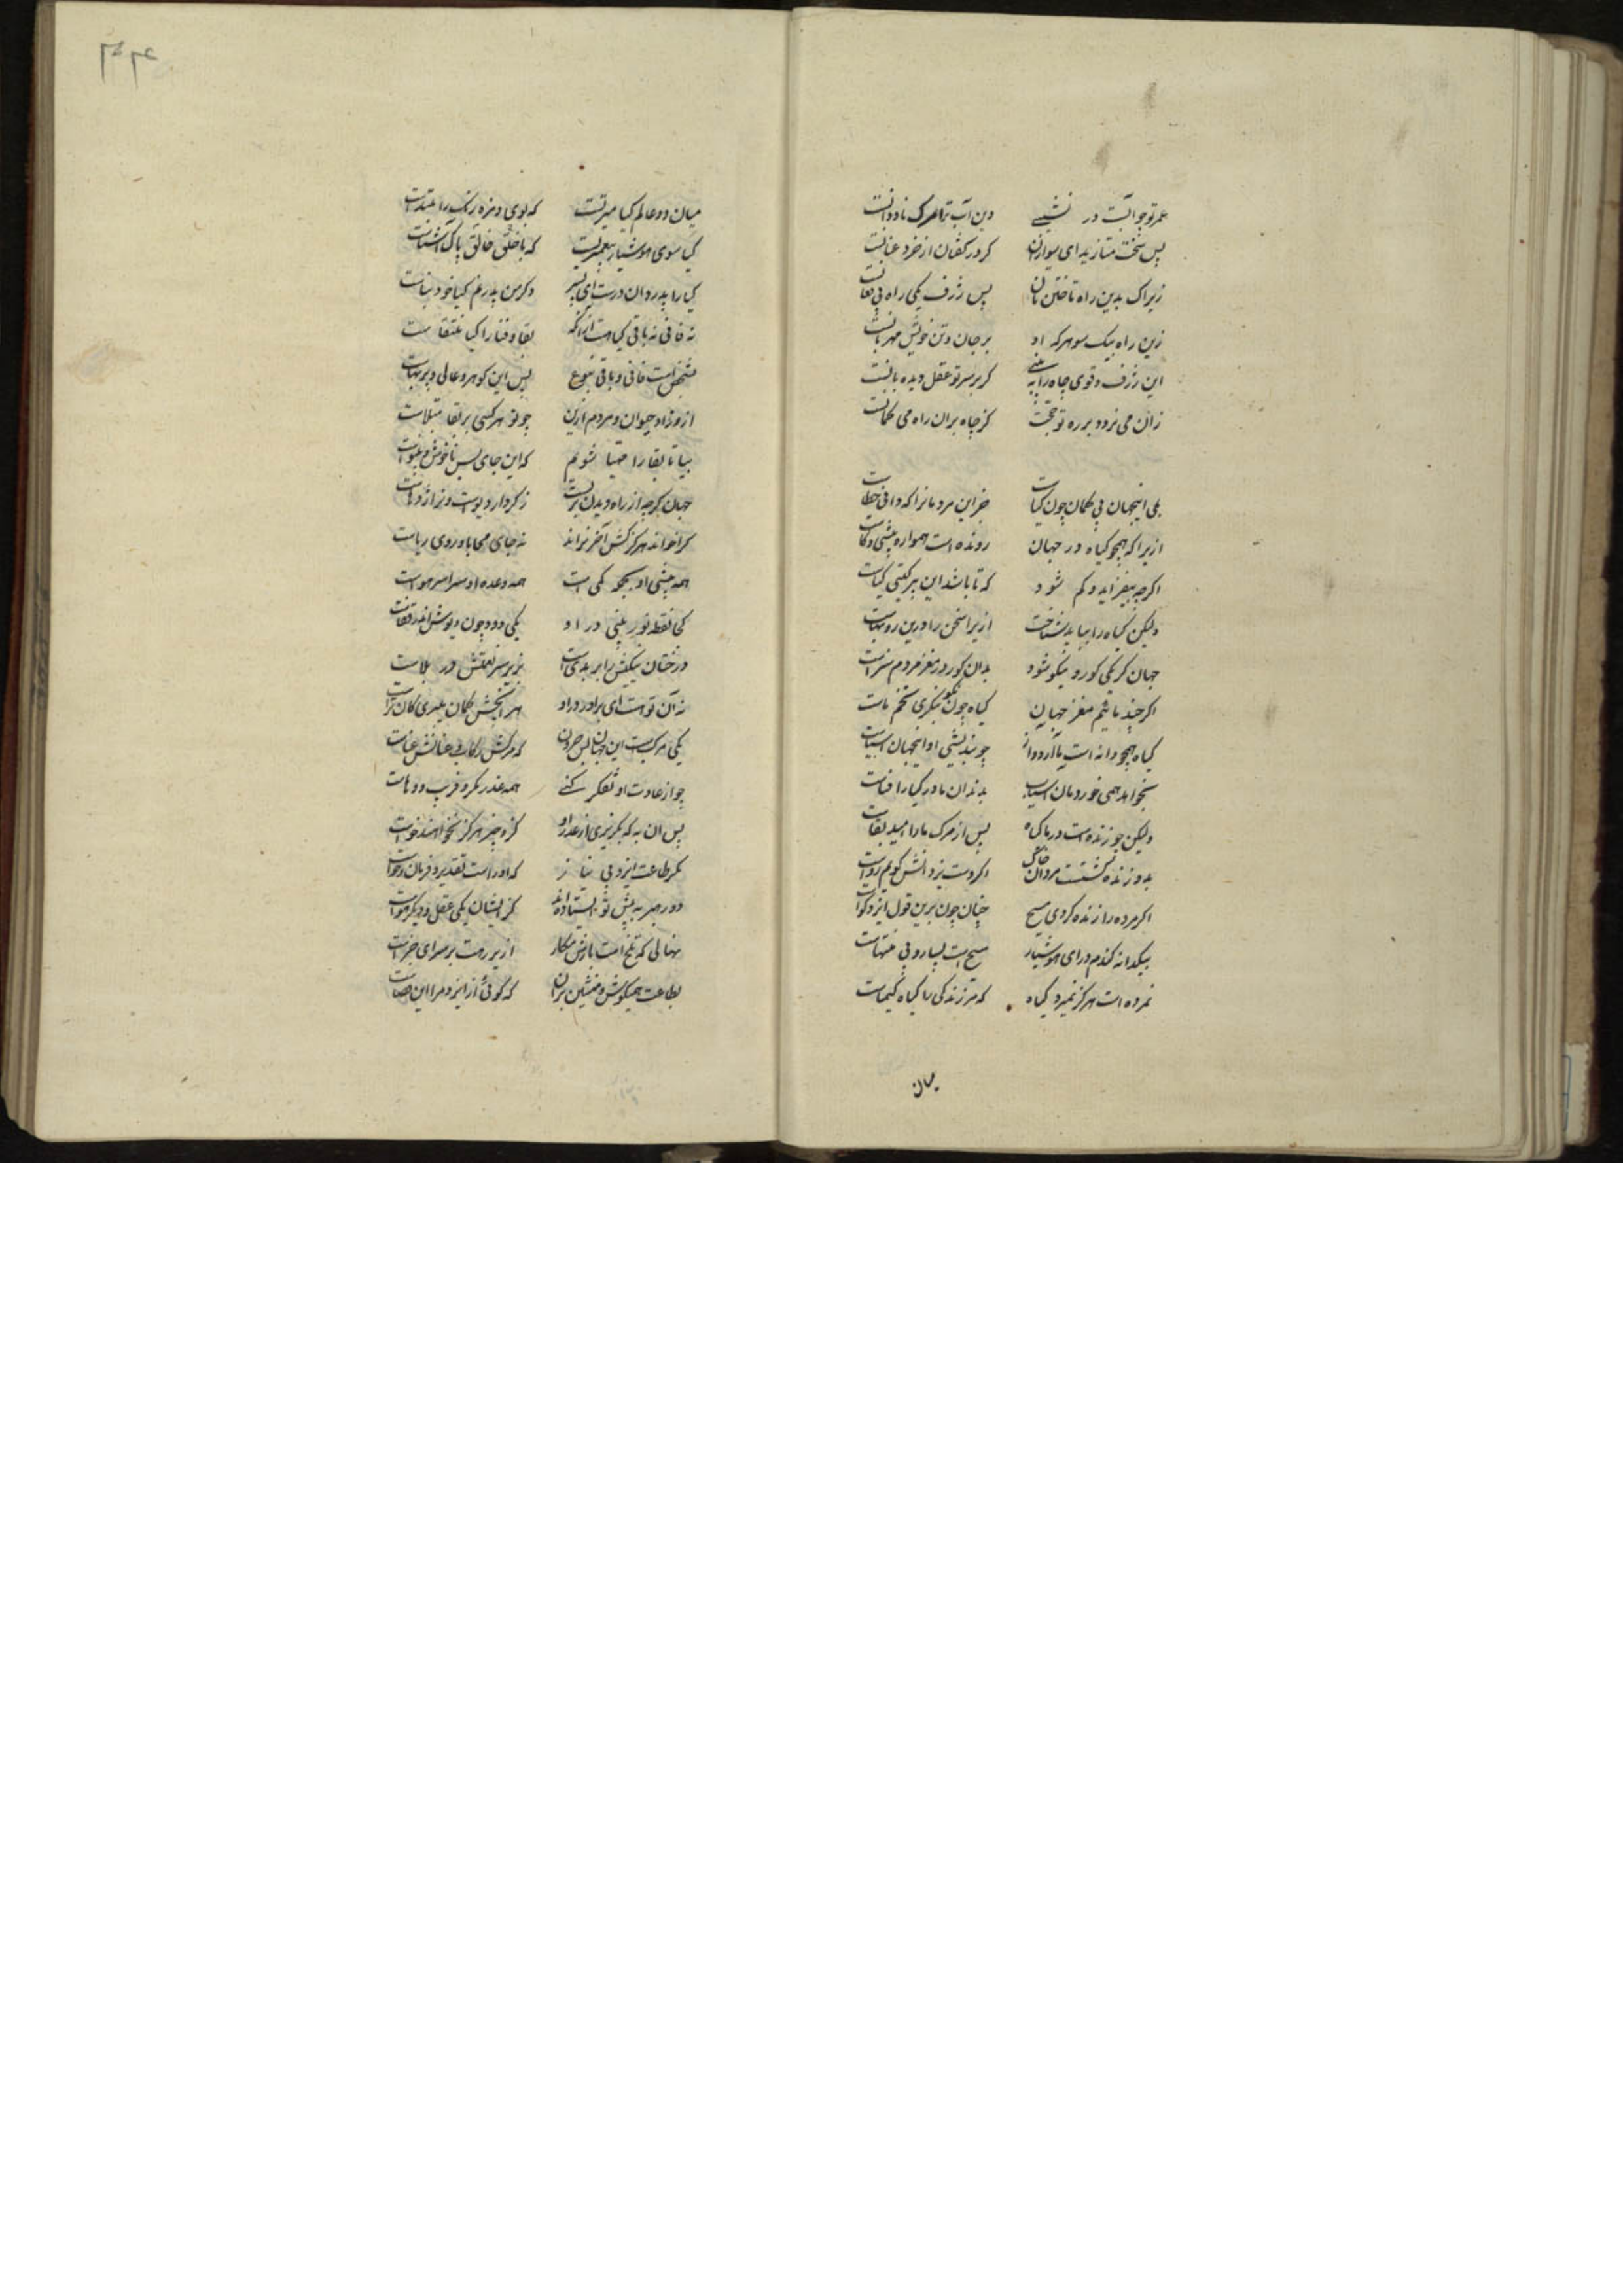 عمر تو چو آبست در نشیبی دین آب ترا مرک ناودانست
پس سخت متازید ای سواران کر در کفتان از خرد عنانست
زیراک بدین راه تاختن تان پس ژرف یکی راه بی
زین راه بیک سو هر که او بر جان و تن خویش مهربانست
این ژرف و قوی چاه را به بینی کر بر سر تو عقل دیده بانست
زان می نرود بر ره تو حجت کز چاه بران راه می
بلی اینجهان بی کمان چون کیاست جز این مردمانرا که دانی خطاست
ازیرا که همچو کیاه در جهان رونده است همواره بیشی و کاست
اکرچه بیفزاید و کم شود که تا باشد این بر کیتی کیاست
ولیکن کیاه را بباید شناخت ازیرا سخن را درین روتهاست
جهان کر یکی کور و نیکو شود بدان کور در مغز مردم سزاست
اکر چند ما تخم مغز جهان کیاه چون نکو بنکری تخم ماست
کیاه همچو دانه است با آرد و از چو بندیشی او اینجهان آسیاست
نخواهد همی خوردمان آسیاب بدندان ما در کیا را فناست
ولیکن چو زنده است در ما کیاه پس از مرک ما را امید بقاست
بدو زنده کشتست مردان خاک اکر دست یزدانش کویم رواست
اکر مرده را زنده کردی مسیح چنان چون برین قول ایزد کواست
بیکدانه کندم در ای هوشیار مسیح است بسیار و بی منتهاست
نمرده است هرکز نمیرد کیاه که مر زندکی را کیاه کیمیاست
میان
میان دو عالم کیا میزنیست که بوی و مزه رنک را مبتداست
کیا سوی هوشیار پیغمبریست که با خلق خالق پاک آشناست
کیا را پدر دان درست ای پسر وکر من پدر نم کیا خود نیاست
نه فانی نه باقی کیاهست ازانکه بقا و فنا را کیا ملتقاست
بشخص است فانی و باقی بنوع پس این کوهر و عالی و بی بهاست
ازو زاد حیوان و مردم ازین چو تو هر کسی بر بقا مبتلاست
بیا تا بقا را مهیا شویم که این جای بس ناخوش و بینواست
جهان کرچه از راه دیدن پریست ز کردار دیوست و نر اژدهاست
کرا خواند هرکز کش آخر نراند نه جای محابا و روی ریاست
همه بیشی او بجمله کمی است همه وعده او سراسر هواست
کجا نقطه نور بینی در او یکی دود چون دیوش اندر قفاست
درختان نیکیش را بر بدی است بزیر سر نعمتش در بلاست
نه آن تو است ای برادر درو هر آنچش کمان میبری کان تراست
یکی مرکبست این جهان بس حرون که مرکش رکاب و عنانش عناست
چو از عادت او تفکر کنی همه غدر مکر و فریب و دهاست
پس ان به که بکریزی از غدر او کزو چیز هرکز نخواهند خواست
مکر طاعت ایزد بی نیاز که او راست تقدیر و فرمان و خواست
دو رهبر به پیش تو ایستاده اند کز ایشان یکی عقل و دیکر هواست
نهالی که تلخ است بارش مکار ازیرت برسرای جزاست
بطاعت همیکوش و منشین بران که کوئی از ایزد مرا این قضاست